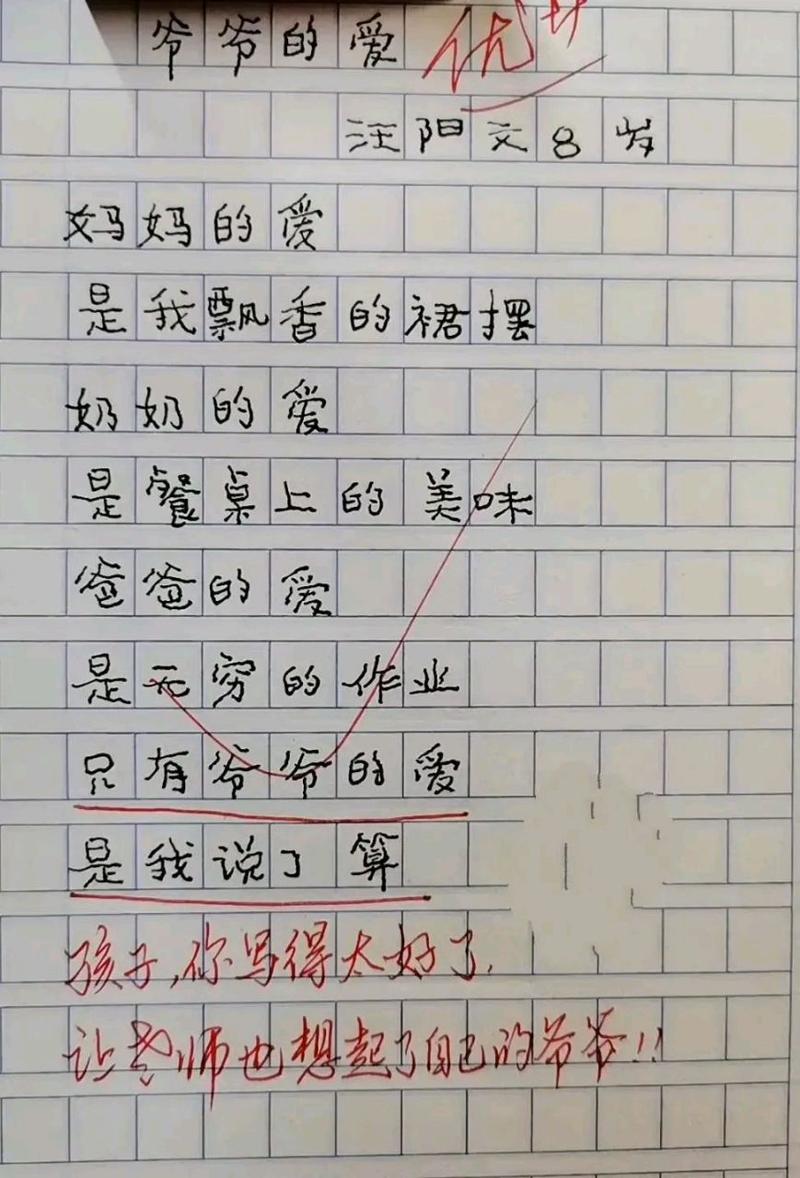 爷爷的爱 优++
汪阳文8岁
妈妈的爱
是我飘香的裙摆
奶奶的爱
是餐桌上的美味
爸爸的爱
是无穷的作业
只有爷爷的爱
是我说了算
孩子,你写得太好了,
让老师也想起了自己的爷爷!!